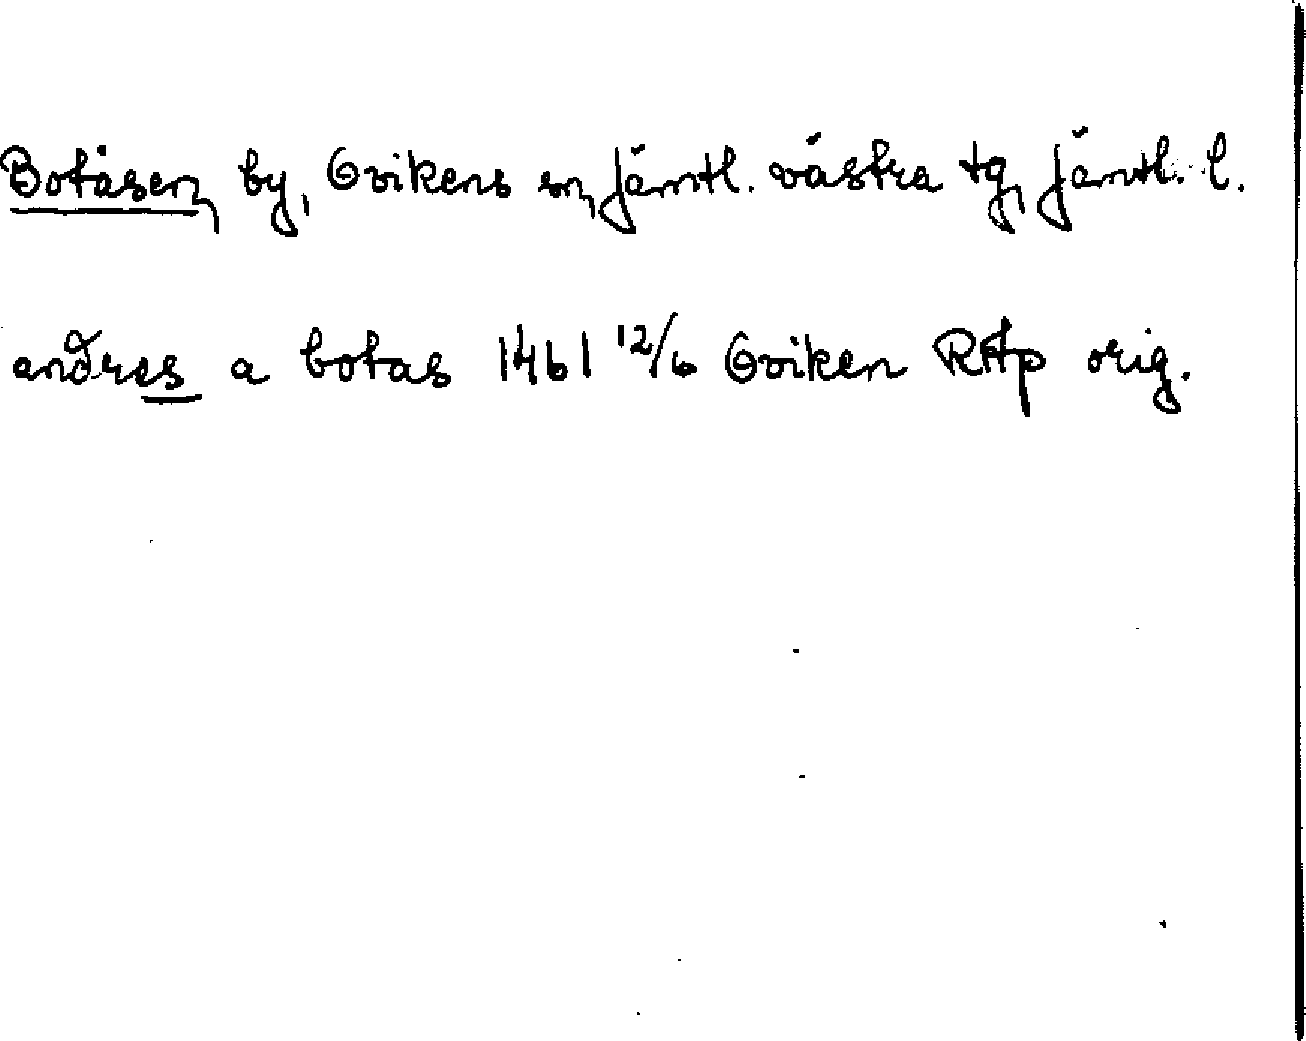 Botåsen, by, Ovikens sn, Jämtl. västra tg, Jämtl. l.
andres a botas 1461 12/6 Oviken RAp orig.